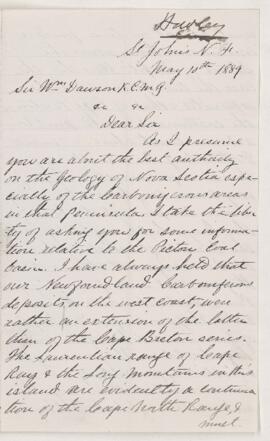 Howley
St Johns N. F.
May 10th 1889
Sir Wm Dawson K.C.M.G.
Dear Sir
As I presume
you are about the best authority
on the Geology of Nova Scotia espe-
cially of the Carboniferous areas
in that Peninsula I take the liber-
ty of asking you for some informa-
tion relative to the Pictou Coal
basin. I have always held that
our Newfoundland Carboniferous
deposits on the west coast, were
rather an extension of the latter
than of the Cape Breton series.
The Laurentian range of Cape
Ray & the Long Mountains in this
island are evidently a continua-
tion of the Cape North Range, &
must